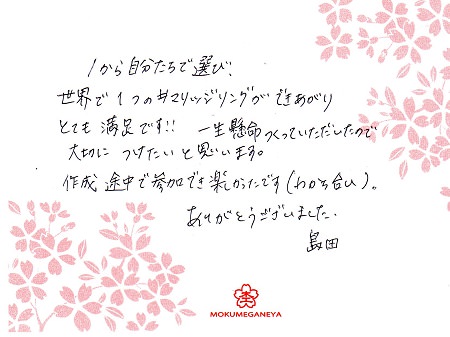 1から自分たちで選び、
世界で1つのマリッジリングができあがり
とても満足です!! 一生懸命つくっていただいたので
大切につけたいと思います。
作成途中で参加でき楽しかったです(わかち合い)。
ありがとうございました。
島田
杢
MOKUMEGANEYA